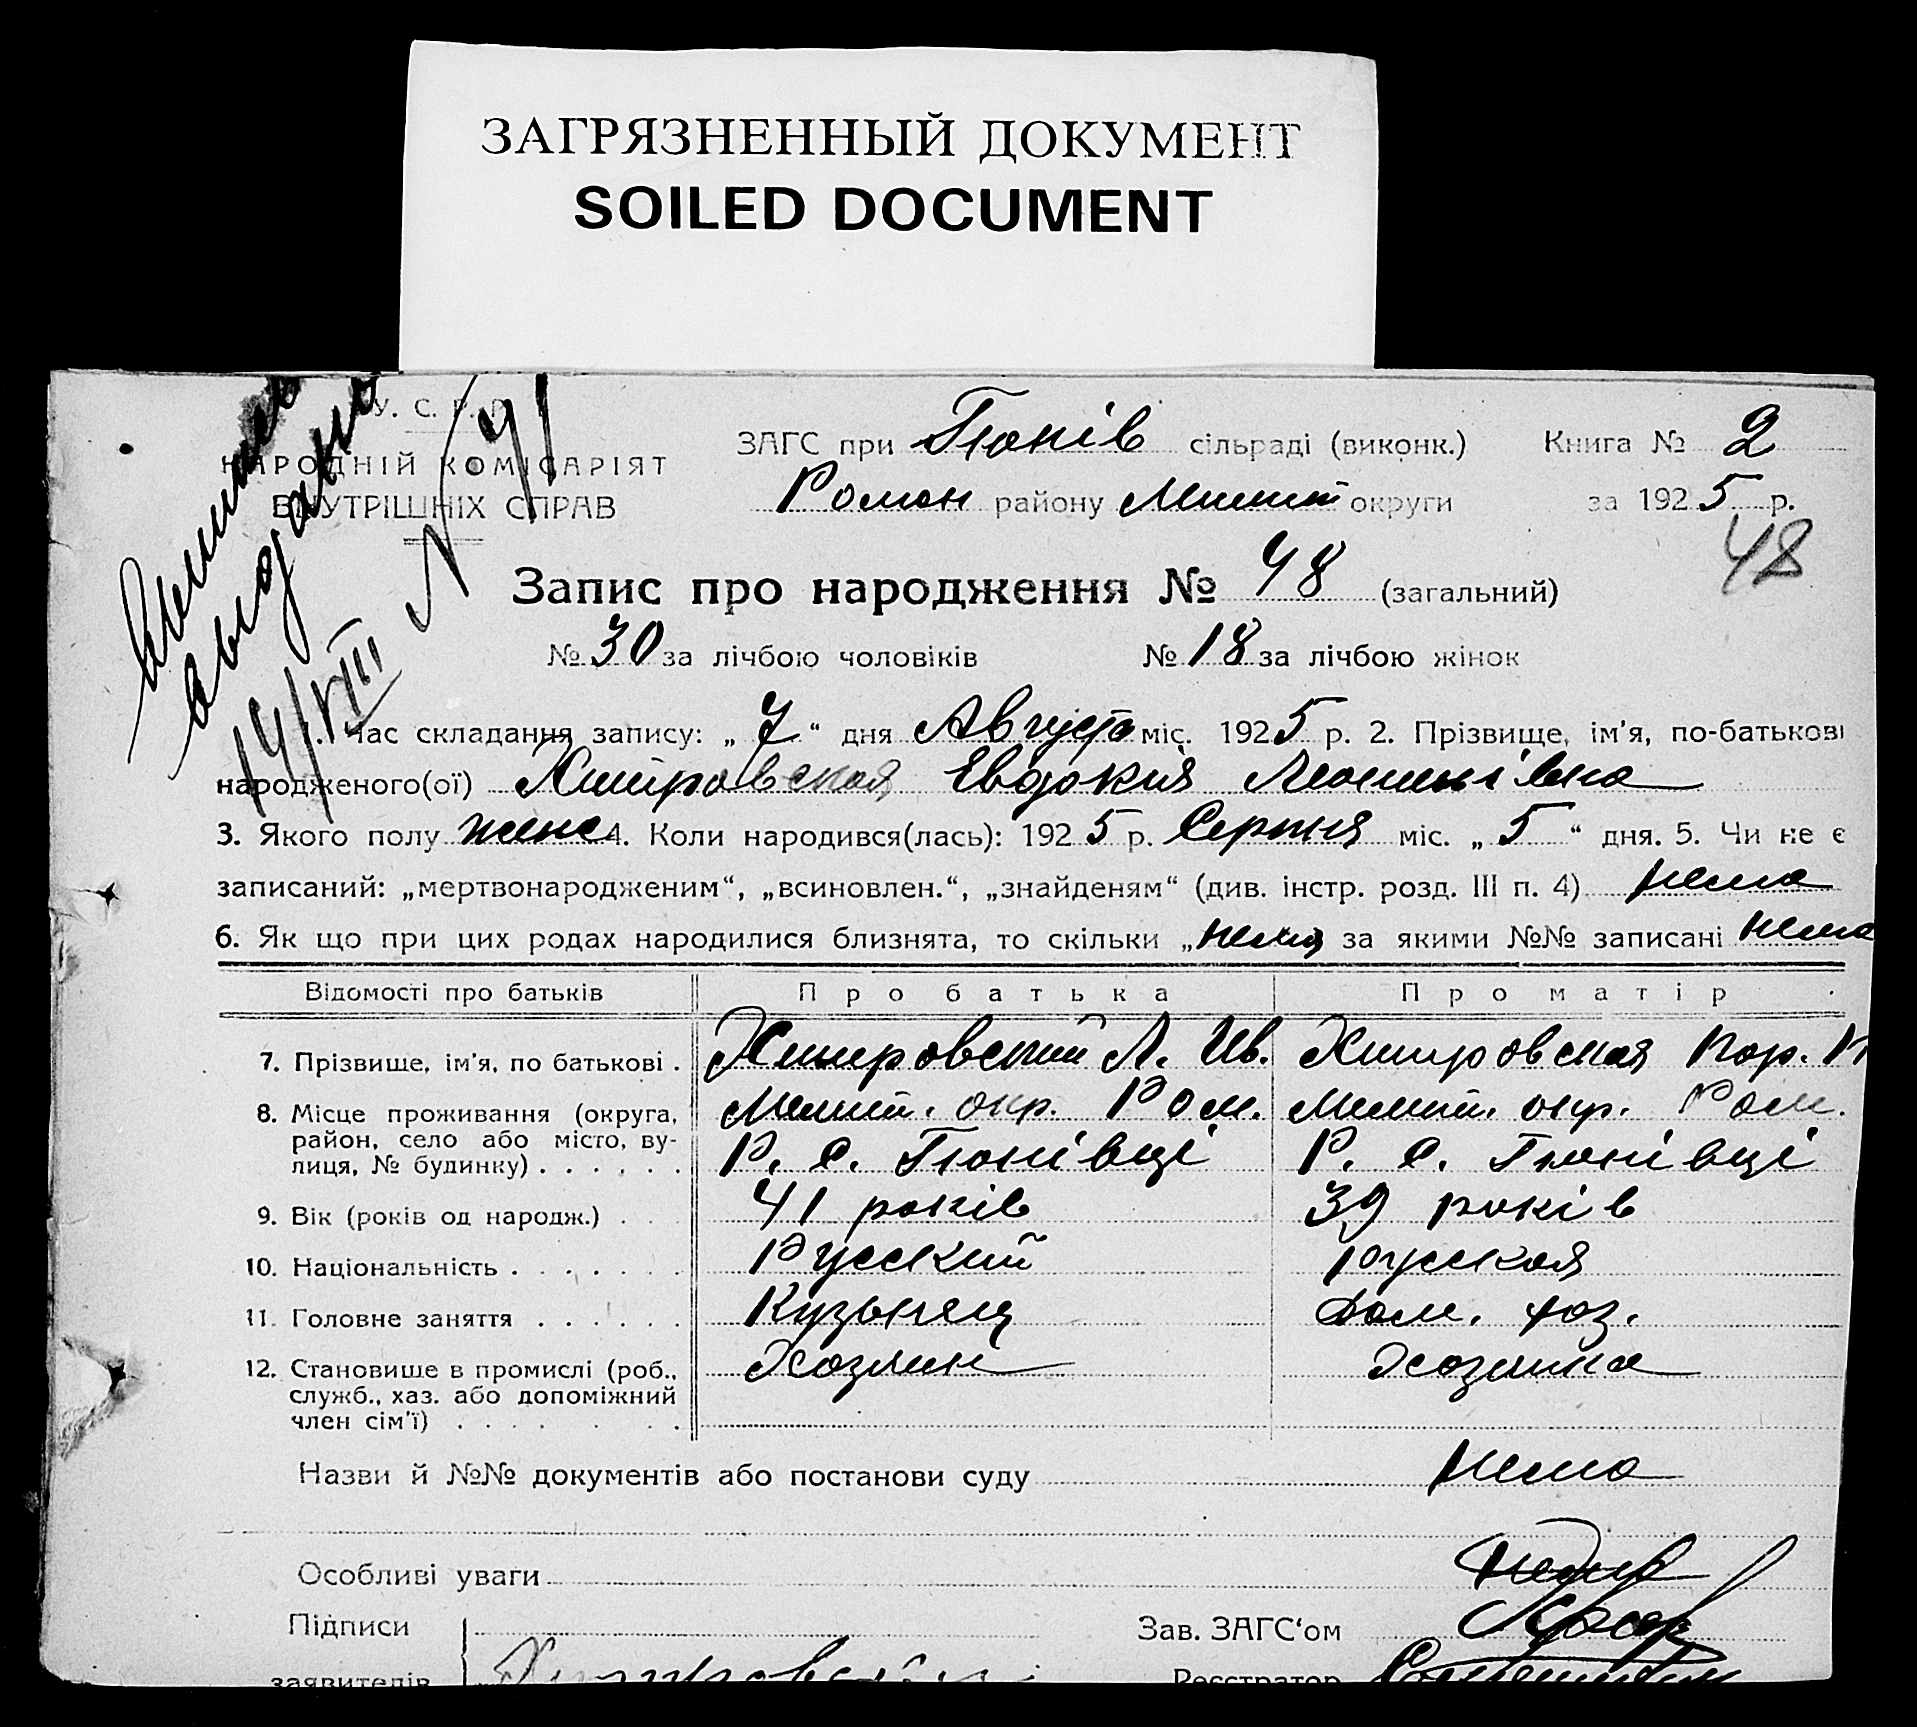 ЗАГРЯЗНЕННЫЙ ДОКУМЕНТ
SOILED DOCUMENT
У. С. Р. Р.
НАРОДНІЙ КОМІСАРІЯТ
ВНУТРІШНІХ СПРАВ
14/VIII N 41
ЗАГС при Тюнів сільраді (виконк.) Книга № 2
Ромен району округи за 1925 р.
48
Запис про народження № 48 (загальний)
№ 30 за лічбою чоловіків № 18 за лічбою жінок
1. Час складання запису: „7“ дня Августа міс. 1925 р. 2. Прізвище, ім'я, по-батькові
народженого(ої) Евдокия
3. Якого полу жіноч 4. Коли народився(лась): 1925 р. Серпня міс. „5“ дня. 5. Чи не є
записаний: „мертвонародженим“, „всиновлен.“, „знайденям“ (див. інстр. розд. III п. 4) нема
6. Як що при цих родах народилися близнята, то скільки „нема за якими №№ записані нема
Відомості про батьків Про батька Про матір
7. Прізвище, ім'я, по батькові . Хмировский Л. Ив. Хмировская
8. Місце проживання (округа, окр. Ром. окр. Ром.
район, село або місто, ву- Р. С. Тюнівці Р. С. Тюнівці
лиця, № будинку) . . . . . .
9. Вік (років од народж.) . . 41 років 39 років
10. Національність . . . . . . . Русский русская
11. Головне заняття . . . . . . Кузьнец Дом. хоз.
12. Становище в промислі (роб., Хозяин Хозяика
служб., хаз. або допоміжний
член сім'ї) . . . . . .
Назви й №№ документів або постанови суду нема
Особливі уваги
Підписи Зав. ЗАГС‘ом
заявителів Реєстратор